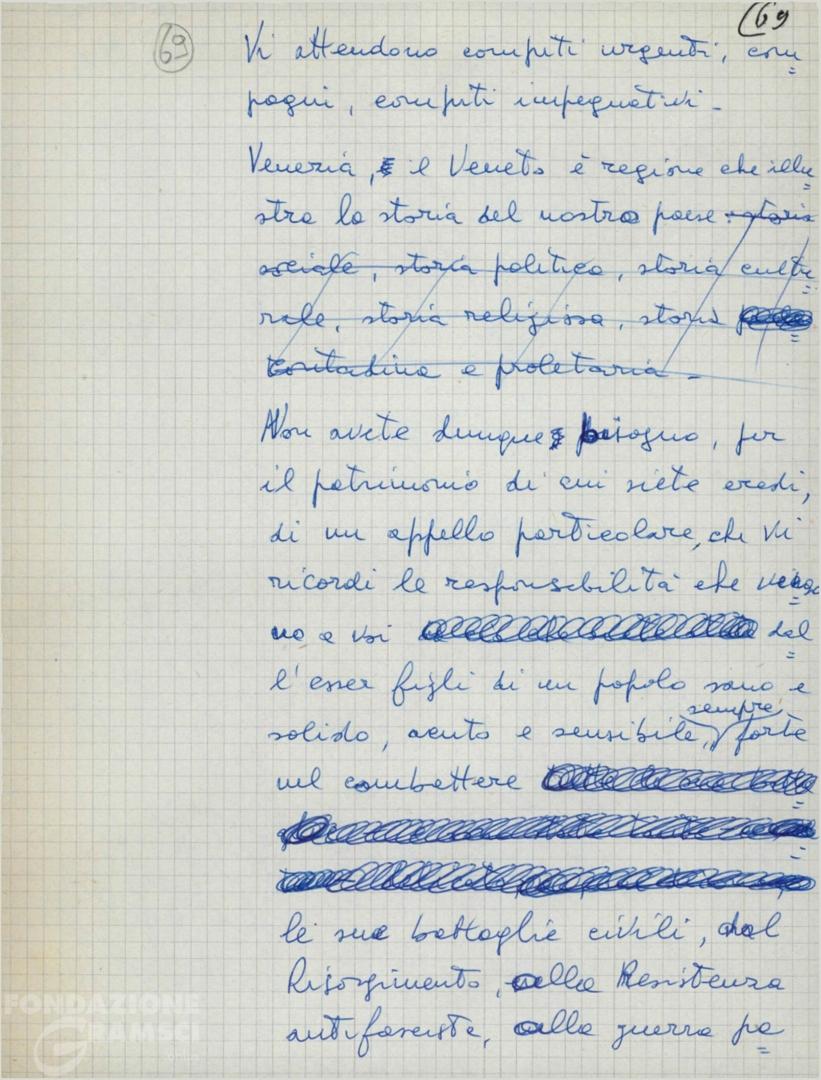 69
69
Vi attendono compiti urgenti, com=
pagni, compiti impegnativi -
Venezia, e il Veneto è regione che illu=
stra la storia del nostro paese: storia
sociale, storia politica, storia cultu=
rale, storia religiosa, storia
contadina e proletaria -
Non avete dunque bisogno, per
il patrimonio di cui siete eredi,
di un appello particolare, che vi
ricordi le responsabilità che vengo=
no a voi dal=
l'esser figli di un popolo sano e
sempre
solido, acuto e sensibile, forte
nel combattere
le sue battaglie civili, dal
Risorgimento, alla Resistenza
antifascista, alla guerra pa=
FONDAZIONE
GRAMSCI